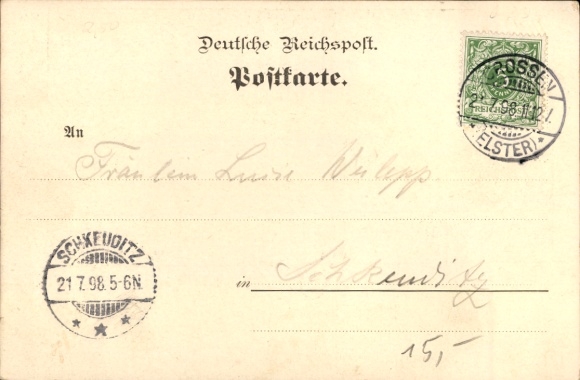 Deutsche Reichspost.
Postkarte.
5
REICHSPOST
CROSSEN
21.7.98.11-12V.
(ELSTER)
An
Fräulein Luise
SCHKEUDITZ
21 7.98.5-6N.
in Schkeuditz
15,-